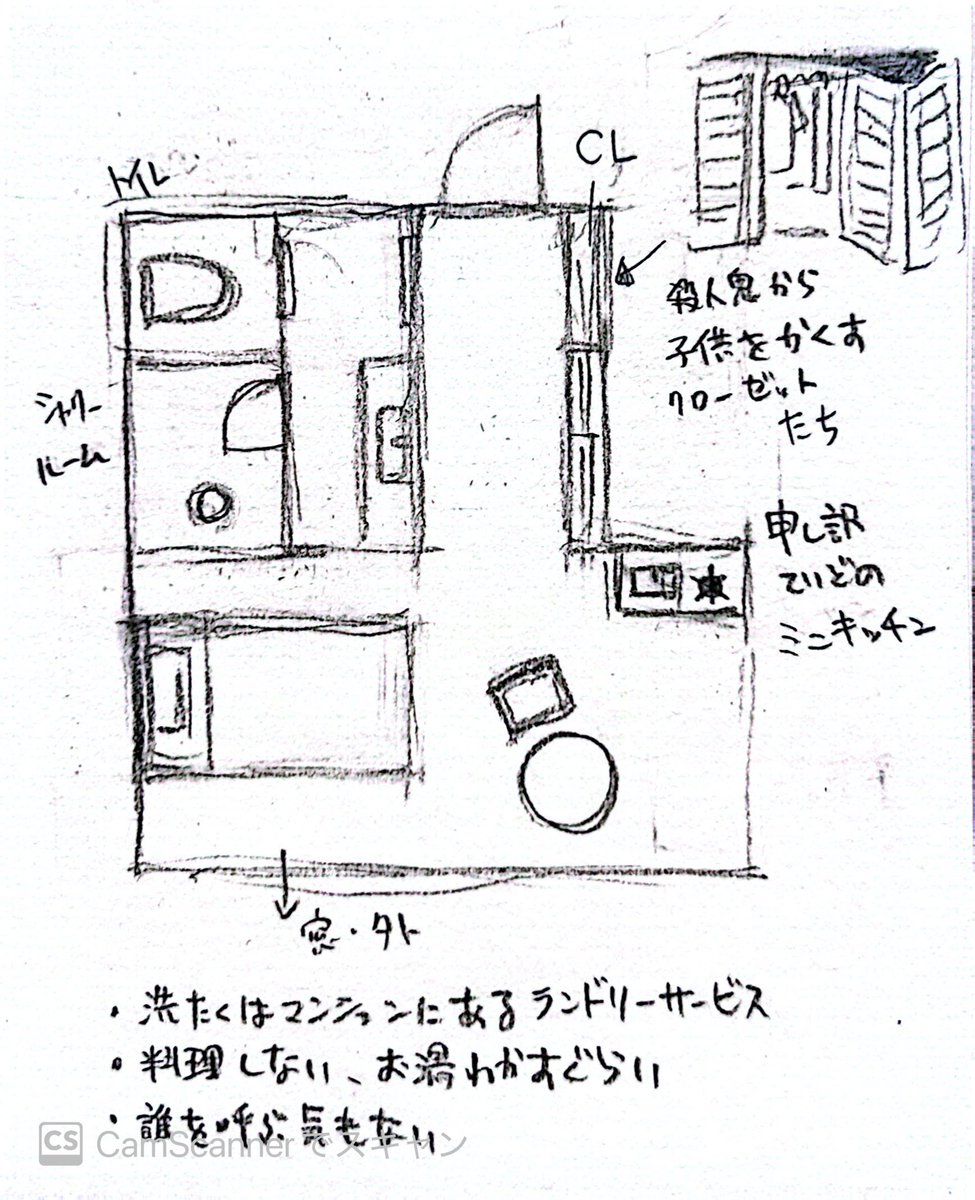 トイレ
CL
殺人鬼から
子供をかくす
クローゼット
たち
シャワー
ルーム
申し訳
ていどの
ミニキッチン
窓・外
・洗たくはマンションにあるランドリーサービス
・料理しない、お湯わかすぐらい
・誰を呼ぶ気もない
CS CamScannerでスキャン